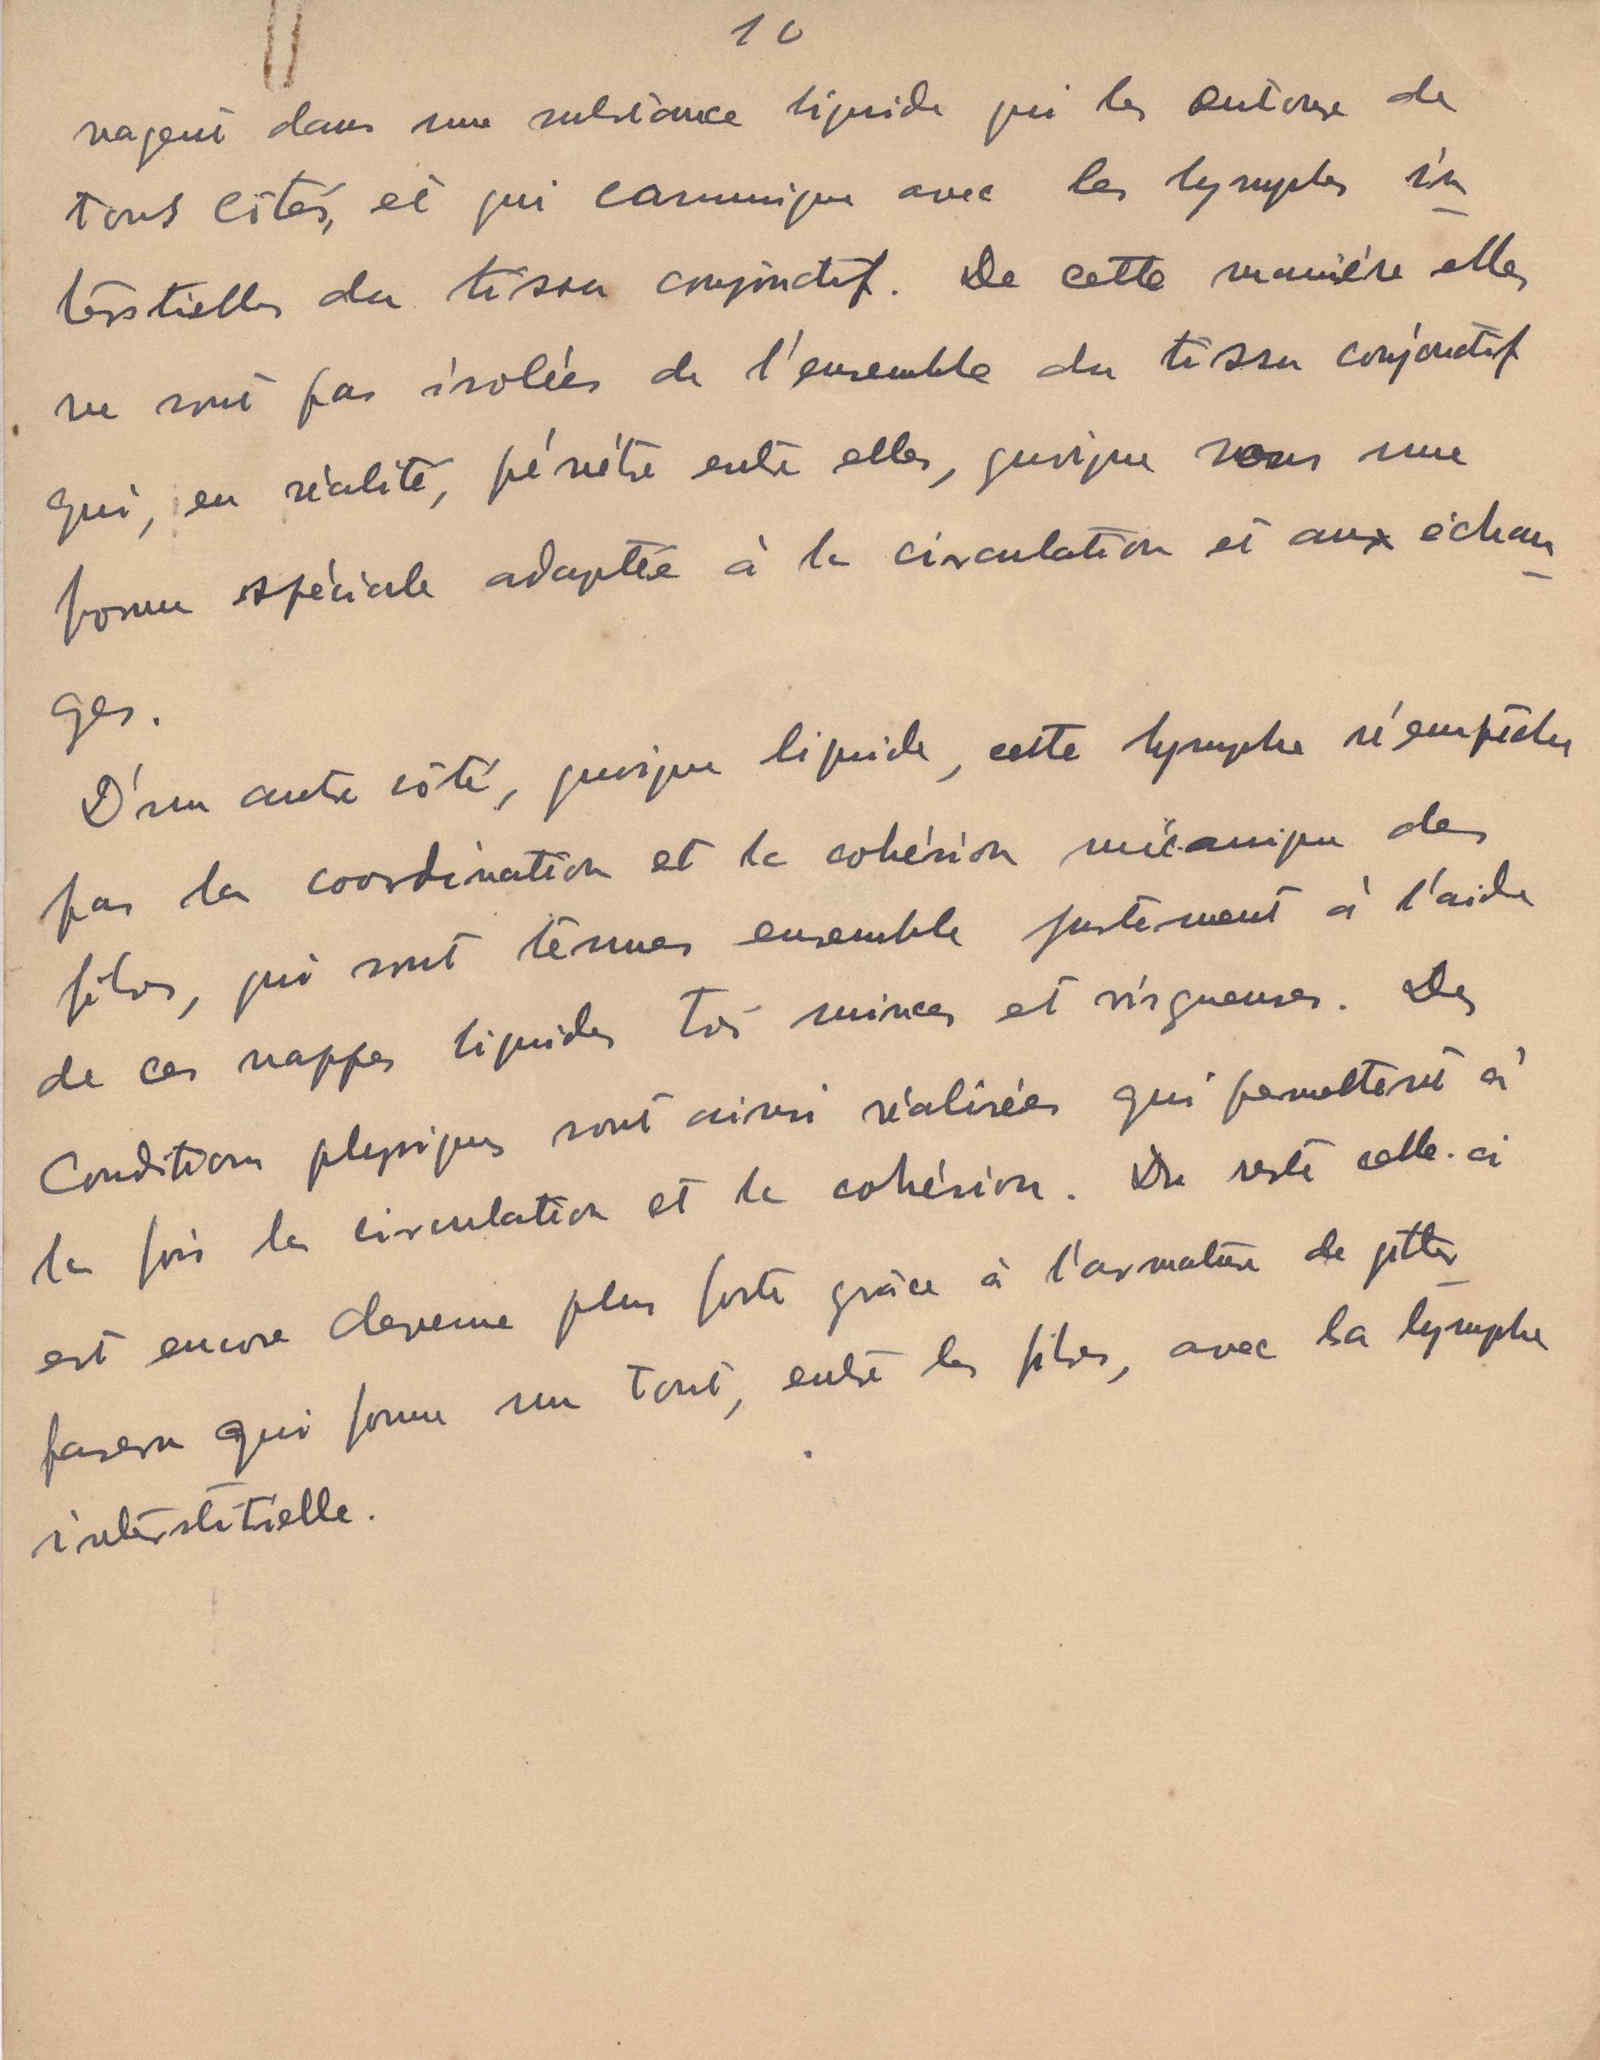 10
nagent dans une substance liquide qui les entoure de
tous cotés, et qui comunique avec les lymphes in
terstielles du tissu conjonctif. De cette manière elles
ne sont pas isolées de l'ensemble du tissu conjonctif
qui, en réalité, pénétre entre elles, quoique sous une
forme spéciale adaptée à la circulation et aux échan
ges.
D'un autre côté, quoique liquide, cette lymphe n'empêche
pas la coordination et la cohésion mécanique des
fibres, qui sont ténues ensemble justement à l'aide
de ces nappes liquides très minces et visqueuses. Des
Conditions physiques sont ainsi réalisées qui permettent à
la fois la circulation et la cohésion. Du reste celle-ci
est encore devenue plus forte grâce à l'armature de gitter
fasern qui forme un tout, entre les fibres, avec la lymphe
interstitielle.